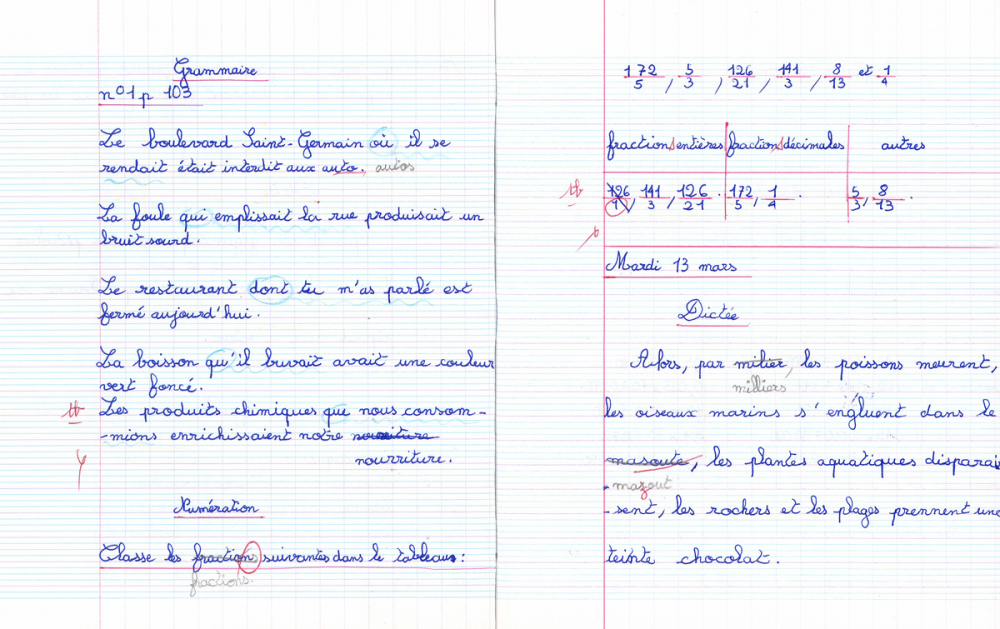 Grammaire
n°1 p 103
Le boulevard Saint-Germain où il se
rendait était interdit aux auto. autos
La foule qui emplissait la rue produisait un
bruit sourd.
Le restaurant dont tu m'as parlé est
fermé aujourd'hui.
La boisson qu'il buvait avait une couleur
vert foncé.
tb Les produits chimiques que nous consom-
-mions enrichissaient notre
nourriture.
Numération
Classe les fractions suivantes dans le tableau :
fractions.
172/5, 5/3, 126/21, 141/3, 8/13 et 1/4
fractions entières fractions décimales autres
tb 141/3, 126/21. 172/5, 1/4. 5/3, 8/13.
Mardi 13 mars
Dictée
Alors, par milier, les poissons meurent,
milliers
les oiseaux marins s'engluent dans le
masoute, les plantes aquatiques disparai
- mazout
-sent, les rochers et les plages prennent une
teinte chocolat.